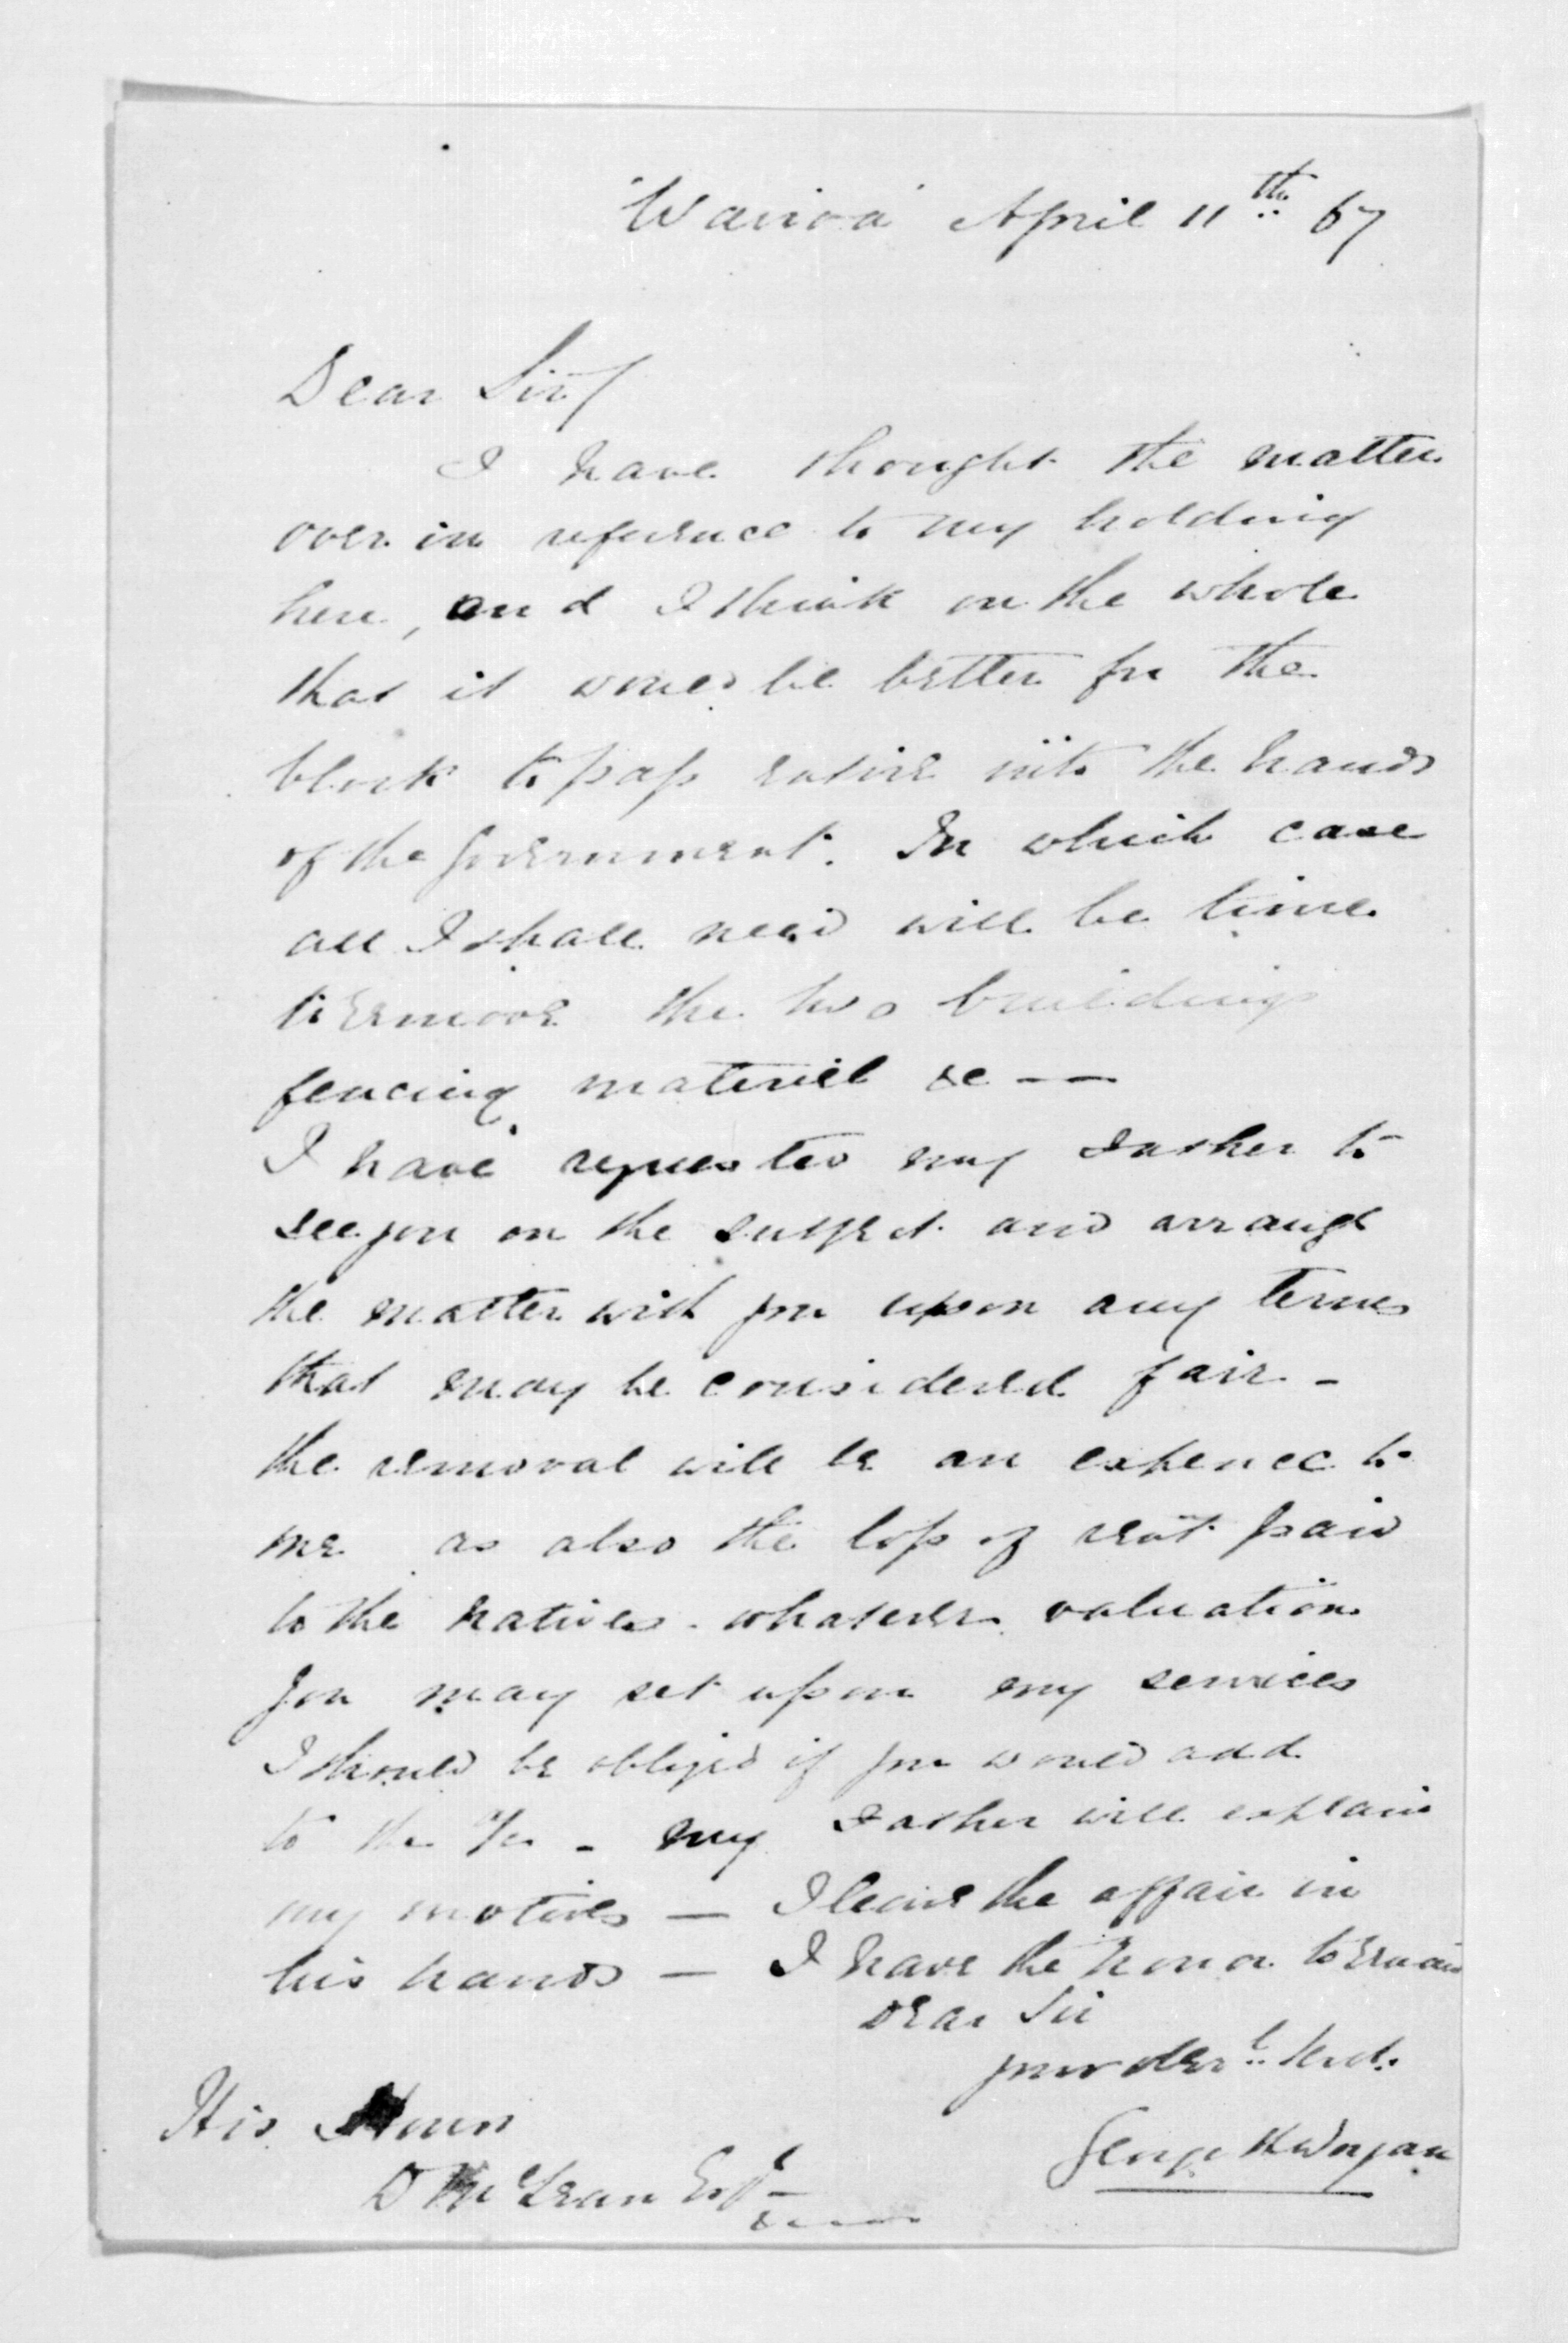 Wairoa April 11th 67
Dear Sir/
I have thought the matter
over in reference to my holding
here, and I think on the whole
that it would be better for the
block to pass entire into the hands
of the Government. In which case
all I shall need will be time
to remove the two buildings
fencing material &c —
I have requested my Father to
see you on the subject and arrange
the matter with you upon any terms
that may be considered fair -
the removal will be an expence to
me as also the loss of rent paid
to the natives - whatever valuation
you may set upon my services
I should be obliged if you would add
to the a/c - my Father will explain
my motives — I leave the affair in
his hands — I have the honor to remain
Dear Sir
your obedt. Servt.
George H Worgan
His Honor
D McLean Esqr